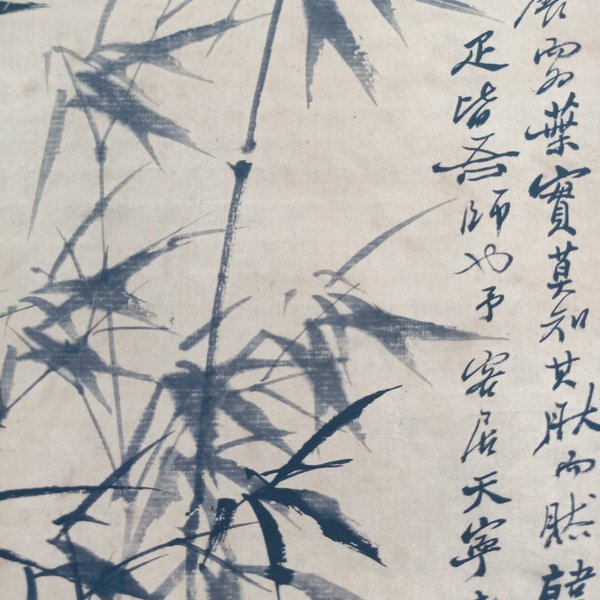 雪葉實莫知其肽而然韓
足皆吾師也予客居天寧